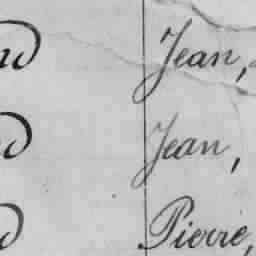 nd Jean,
d Jean,
d Pierre,